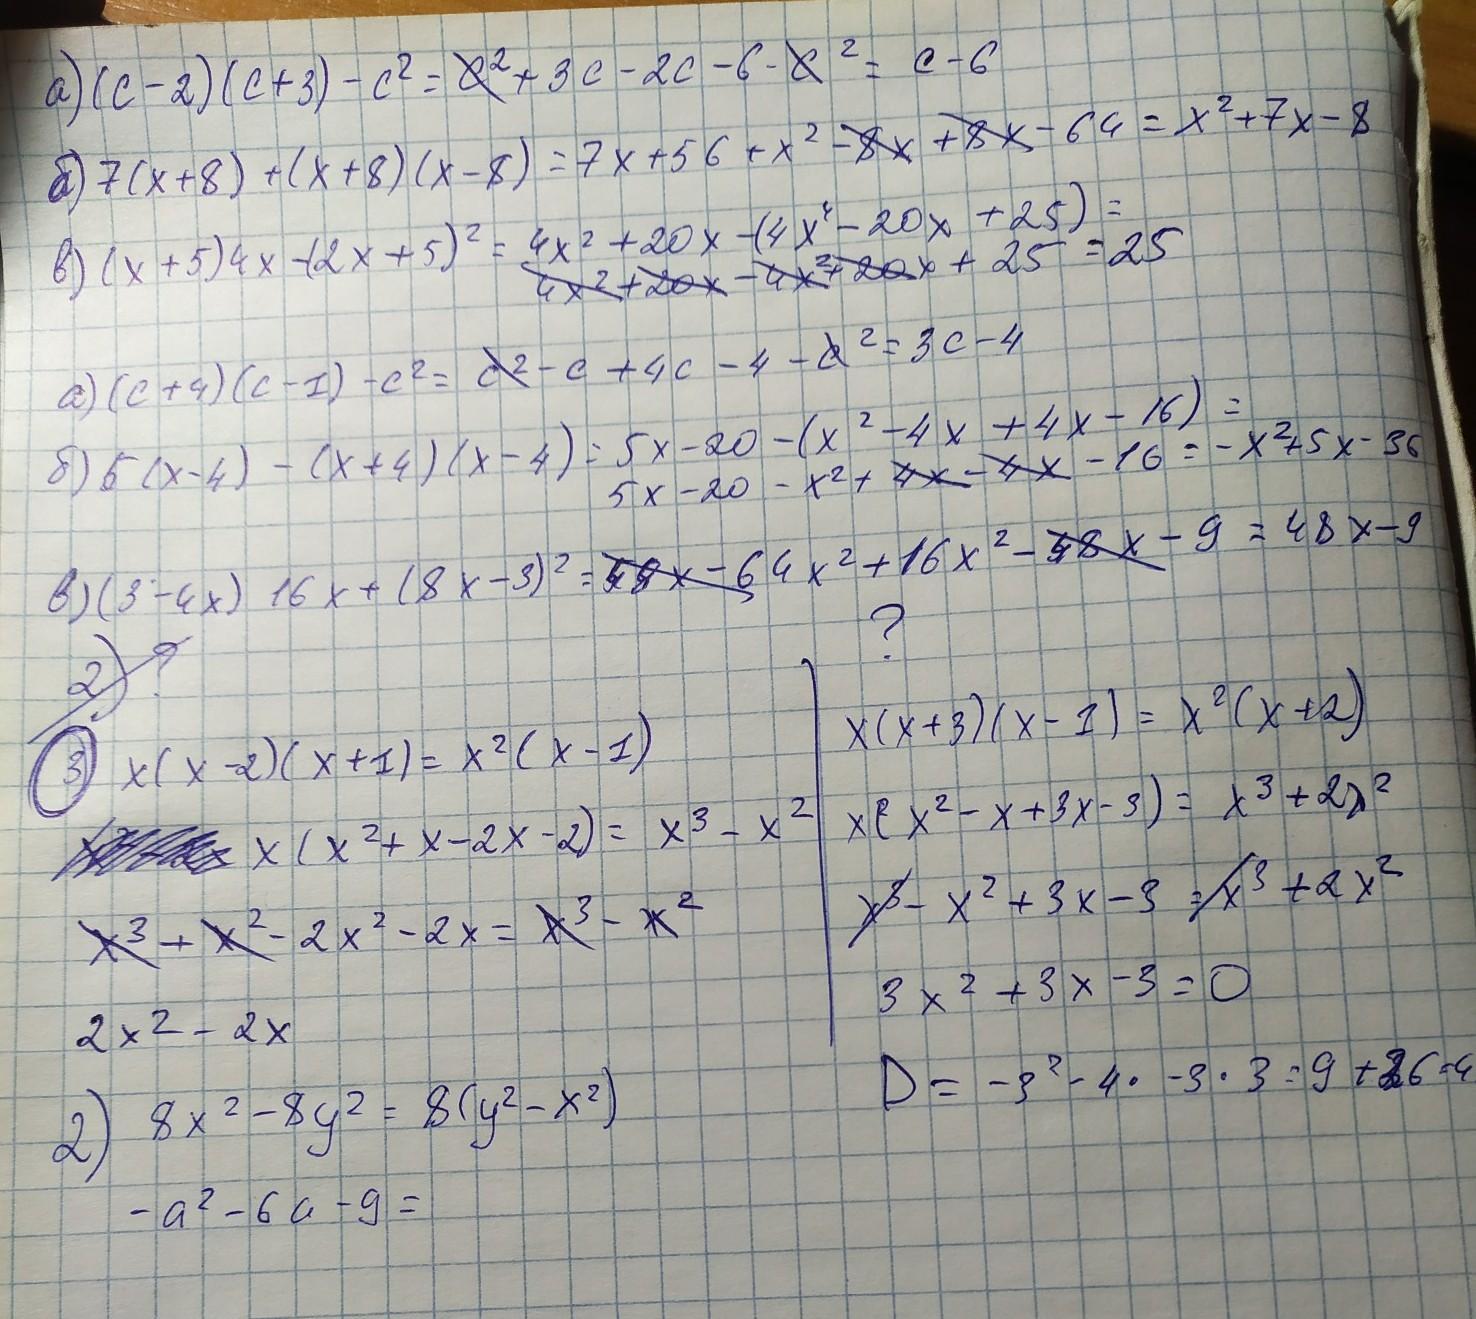 а) (c-2)(c+3)-c² = c²+3c-2c-6-c² = c-6
б) 7(x+8)+(x+8)(x-8) = 7x+56+x²-8x+8x-64 = x²+7x-8
в) (x+5)4x-(2x+5)² = 4x²+20x-(4x²-20x+25) =
4x²+20x-4x²+20x+25 = 25
а) (c+4)(c-1)-c² = c²-c+4c-4-c² = 3c-4
б) 5(x-4)-(x+4)(x-4) = 5x-20-(x²-4x+4x-16) =
5x-20-x²+4x-4x-16 = -x²+5x-36
в) (3-4x)16x+(8x-3)² = 48x-64x²+16x²-48x-9 = 48x-9
?
2) ?
3) x(x-2)(x+1) = x²(x-1)
x(x²+x-2x-2) = x³-x²
x³+x²-2x²-2x = x³-x²
2x²-2x
x(x+3)(x-1) = x²(x+2)
x(x²-x+3x-3) = x³+2x²
x³-x²+3x-3 = x³+2x²
3x²+3x-3 = 0
D = -3²-4·-3·3 = 9+36=4
2) 8x²-8y² = 8(y²-x²)
-a²-6a-9 =